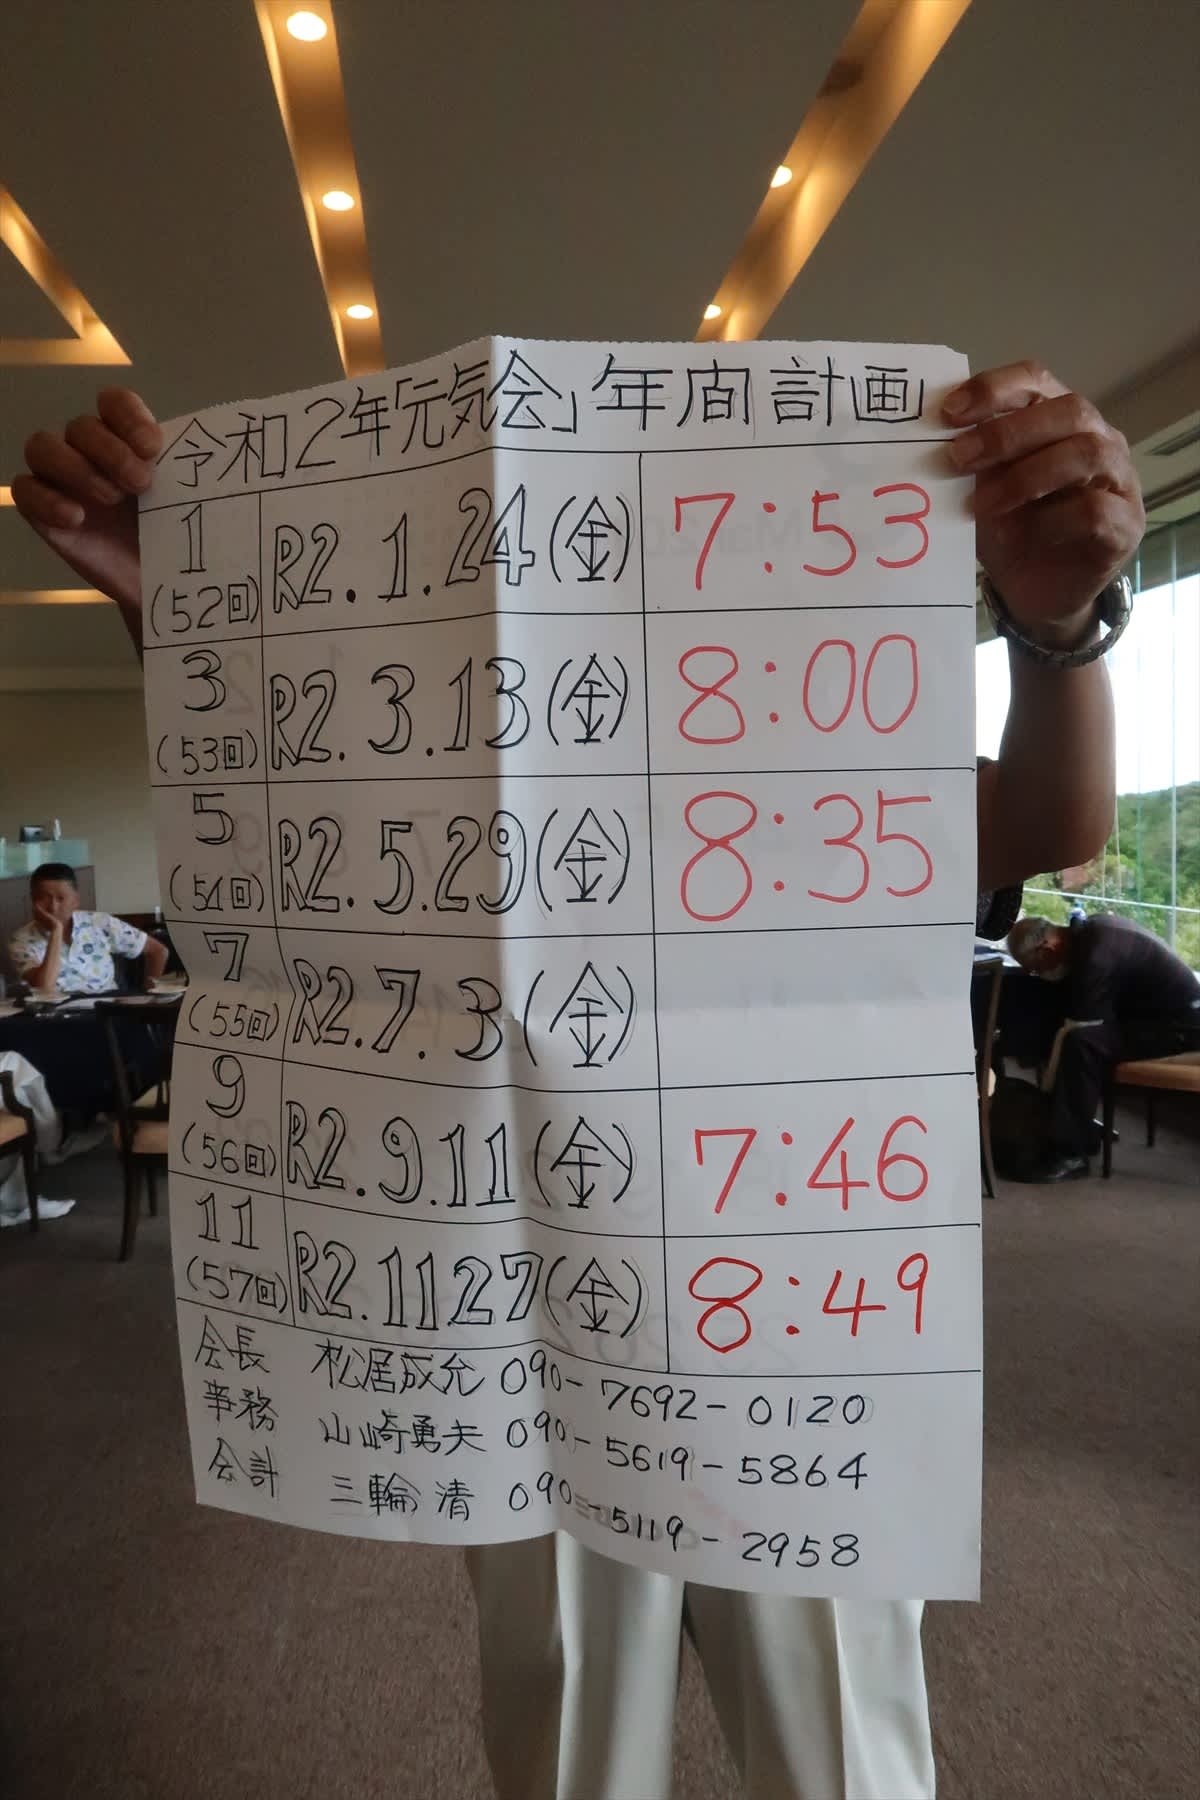 令和2年「元気会」年間計画
1 (52回) R2.1.24(金) 7:53
3 (53回) R2.3.13(金) 8:00
5 (54回) R2.5.29(金) 8:35
7 (55回) R2.7.3(金)
9 (56回) R2.9.11(金) 7:46
11 (57回) R2.11.27(金) 8:49
会長 松居成允 090-7692-0120
事務 山崎勇夫 090-5619-5864
会計 三輪清 090-5119-2958